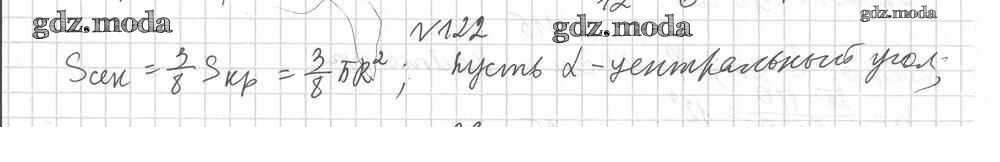 gdz.moda
№122
gdz.moda
gdz.moda
Sсек = 3/8 Sкр = 3/8 πR²; Пусть α - центральный угол;